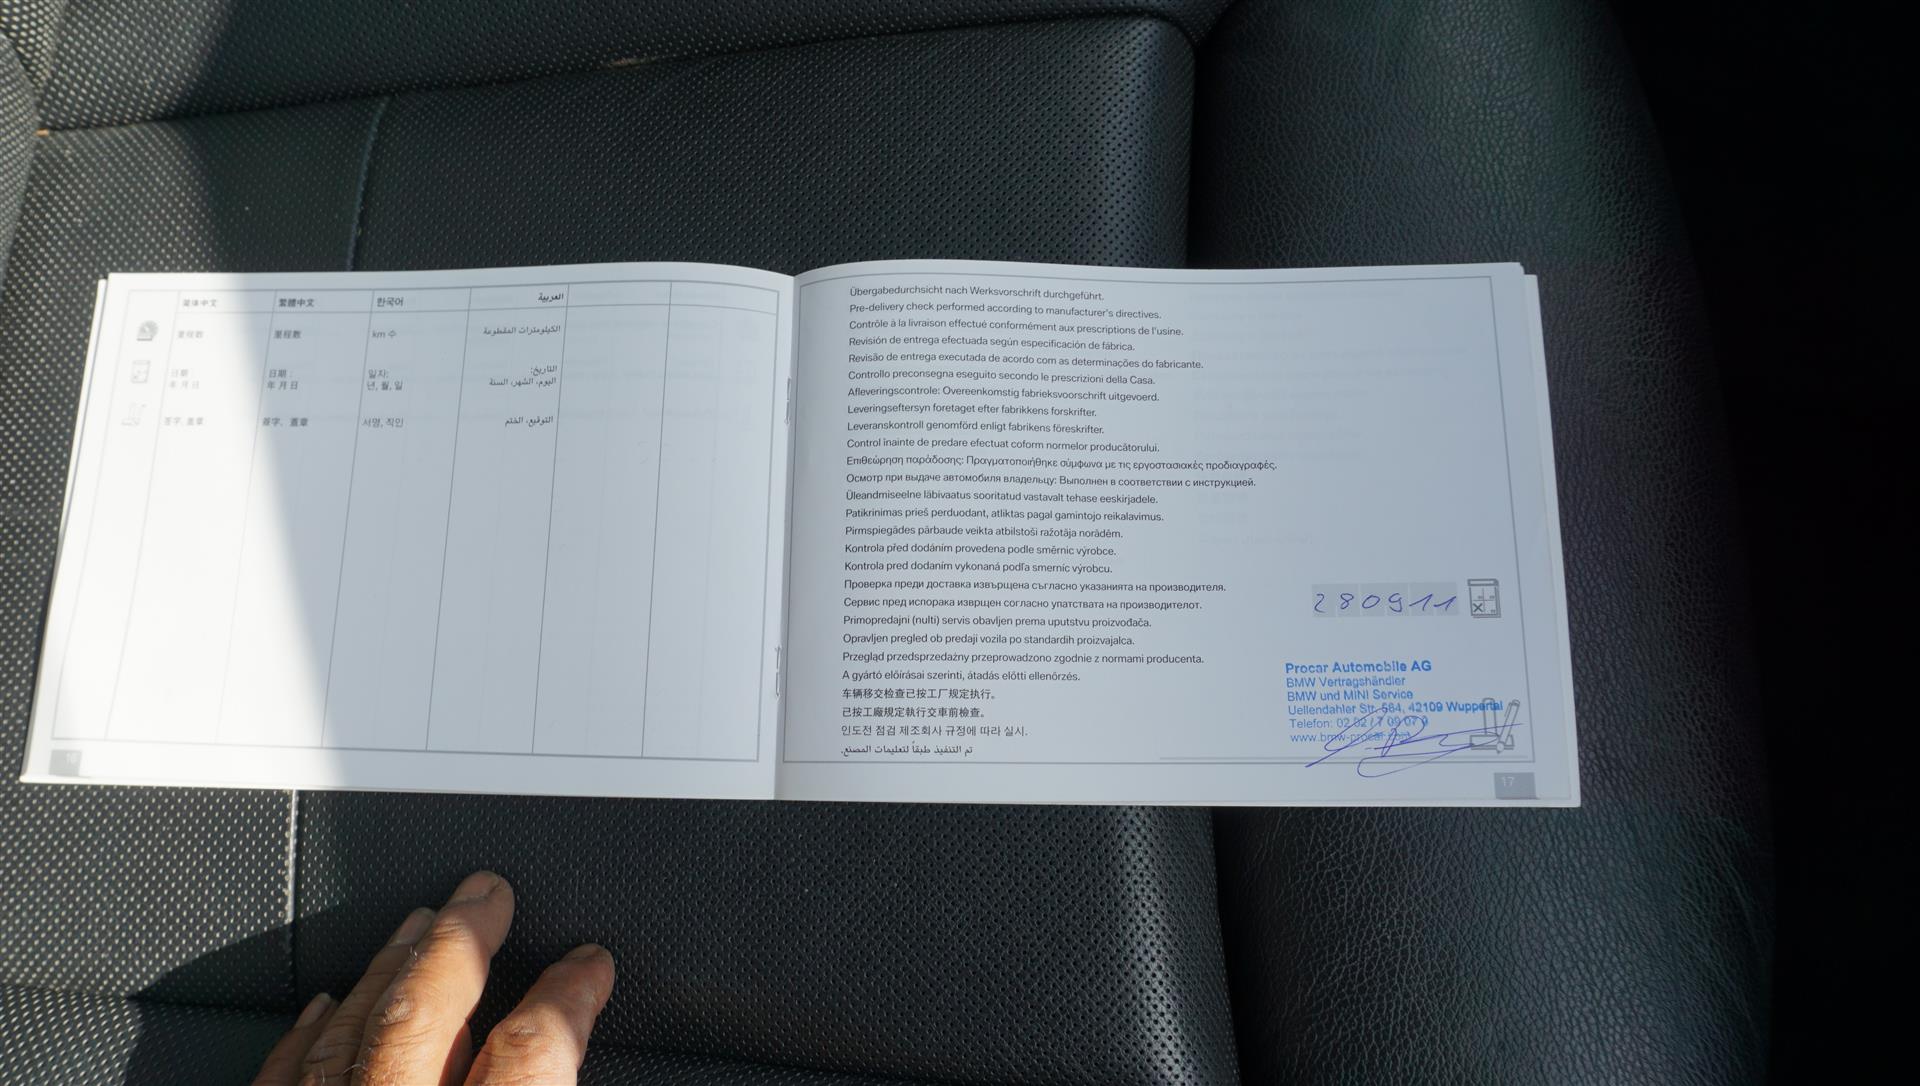 简体中文 繁體中文 한국어 العربية
里程数 里程數 km 수 الكيلومترات المقطوعة
日期 日期 : 일자: التاريخ:
年 月 日 年 月 日 년, 월, 일 اليوم، الشهر، السنة
签字, 盖章 簽字, 蓋章 서명, 직인 التوقيع، الختم
16
Übergabedurchsicht nach Werksvorschrift durchgeführt.
Pre-delivery check performed according to manufacturer's directives.
Contrôle à la livraison effectué conformément aux prescriptions de l'usine.
Revisión de entrega efectuada según especificación de fábrica.
Revisão de entrega executada de acordo com as determinações do fabricante.
Controllo preconsegna eseguito secondo le prescrizioni della Casa.
Afleveringscontrole: Overeenkomstig fabrieksvoorschrift uitgevoerd.
Leveringseftersyn foretaget efter fabrikkens forskrifter.
Leveranskontroll genomförd enligt fabrikens föreskrifter.
Control înainte de predare efectuat coform normelor producătorului.
Επιθεώρηση παράδοσης: Πραγματοποιήθηκε σύμφωνα με τις εργοστασιακές προδιαγραφές.
Осмотр при выдаче автомобиля владельцу: Выполнен в соответствии с инструкцией.
Üleandmiseelne läbivaatus sooritatud vastavalt tehase eeskirjadele.
Patikrinimas prieš perduodant, atliktas pagal gamintojo reikalavimus.
Pirmspiegādes pārbaude veikta atbilstoši ražotāja norādēm.
Kontrola před dodáním provedena podle směrnic výrobce.
Kontrola pred dodaním vykonaná podľa smerníc výrobcu.
Проверка преди доставка извършена съгласно указанията на производителя.
Сервис пред испорака изврщен согласно упатствата на производителот.
Primopredajni (nulti) servis obavljen prema uputstvu proizvođača.
Opravljen pregled ob predaji vozila po standardih proizvajalca.
Przegląd przedsprzedażny przeprowadzono zgodnie z normami producenta.
A gyártó előírásai szerinti, átadás előtti ellenőrzés.
车辆移交检查已按工厂规定执行。
已按工廠規定執行交車前檢查。
인도전 점검 제조회사 규정에 따라 실시.
تم التنفيذ طبقاً لتعليمات المصنع.
280911
Procar Automobile AG
BMW Vertragshändler
BMW und MINI Service
Uellendahler Str. 584, 42109 Wuppertal
Telefon: 02 02 / 7 09 07 0
www.bmw-procar.com
17